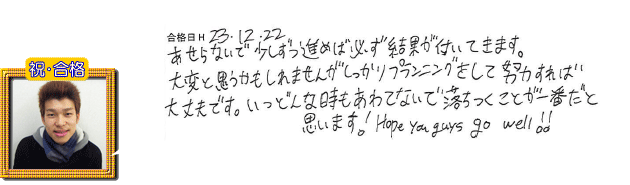 合格日 H 23.12.22
あせらないで少しずつ進めば必ず結果が付いてきます。
大変と思うかもしれませんがしっかりプランニングをして努力すれば
大丈夫です。いつどんな時もあわてないで落ちつくことが一番だと
思います! Hope you guys go well!!
祝・合格